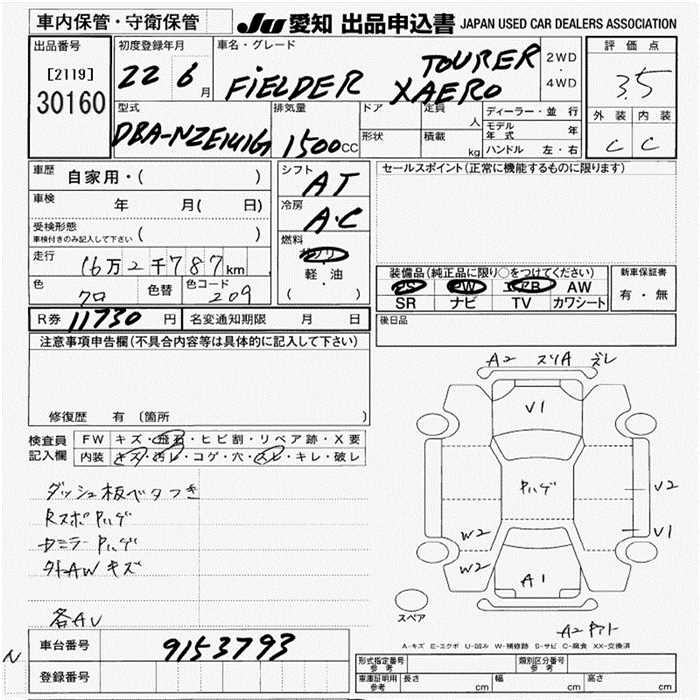 車内保管・守衛保管
JU 愛知 出品申込書 JAPAN USED CAR DEALERS ASSOCIATION
出品番号
[2119]
30160
初度登録年月
22 6月
車名・グレード
FiELDER TOURER
XAERO
2WD
4WD
評価点
3.5
外装 内装
C C
型式
DBA-NZE141G
排気量
1500CC
ドア
形状
定員 人
積載 kg
ディーラー・並行
モデル年式 年
ハンドル 左・右
車歴 自家用・( )
車検 年 月( 日)
受検形態
車検付きのみ記入して下さい ( )
走行 16万2千787km
色 クロ 色替 色コード 209
シフト
AT
冷房
A.C
燃料
ガソリン
軽・油
( )
セールスポイント(正常に機能するものに限ります)
装備品(純正品に限り○をつけてください)
PS PW エアB AW
SR ナビ TV カワシート
新車保証書
有・無
R券 11730円 名変通知期限 月 日
後日品
注意事項申告欄(不具合内容等は具体的に記入して下さい)
修復歴 有 〔箇所
検査員記入欄
FW キズ・飛石・ヒビ割・リペア跡・X要
内装 キズ・汚レ・コゲ・穴・スレ・キレ・破レ
ダッシュ板ベタつき
Rスポハゲ
カミラーハゲ
外AWキズ
各AU
A2 スリA ズレ
V1
ハゲ
V2
V1
W2
W2
A1
スペア
A-キズ E-エクボ U-凹み W-補修跡 S-サビ C-腐食 XX-交換済
N
車台番号 9153793
登録番号
型式指定番号 参考
類別区分番号 参考
車庫証明用 参考 長さ cm 幅 cm 高さ cm